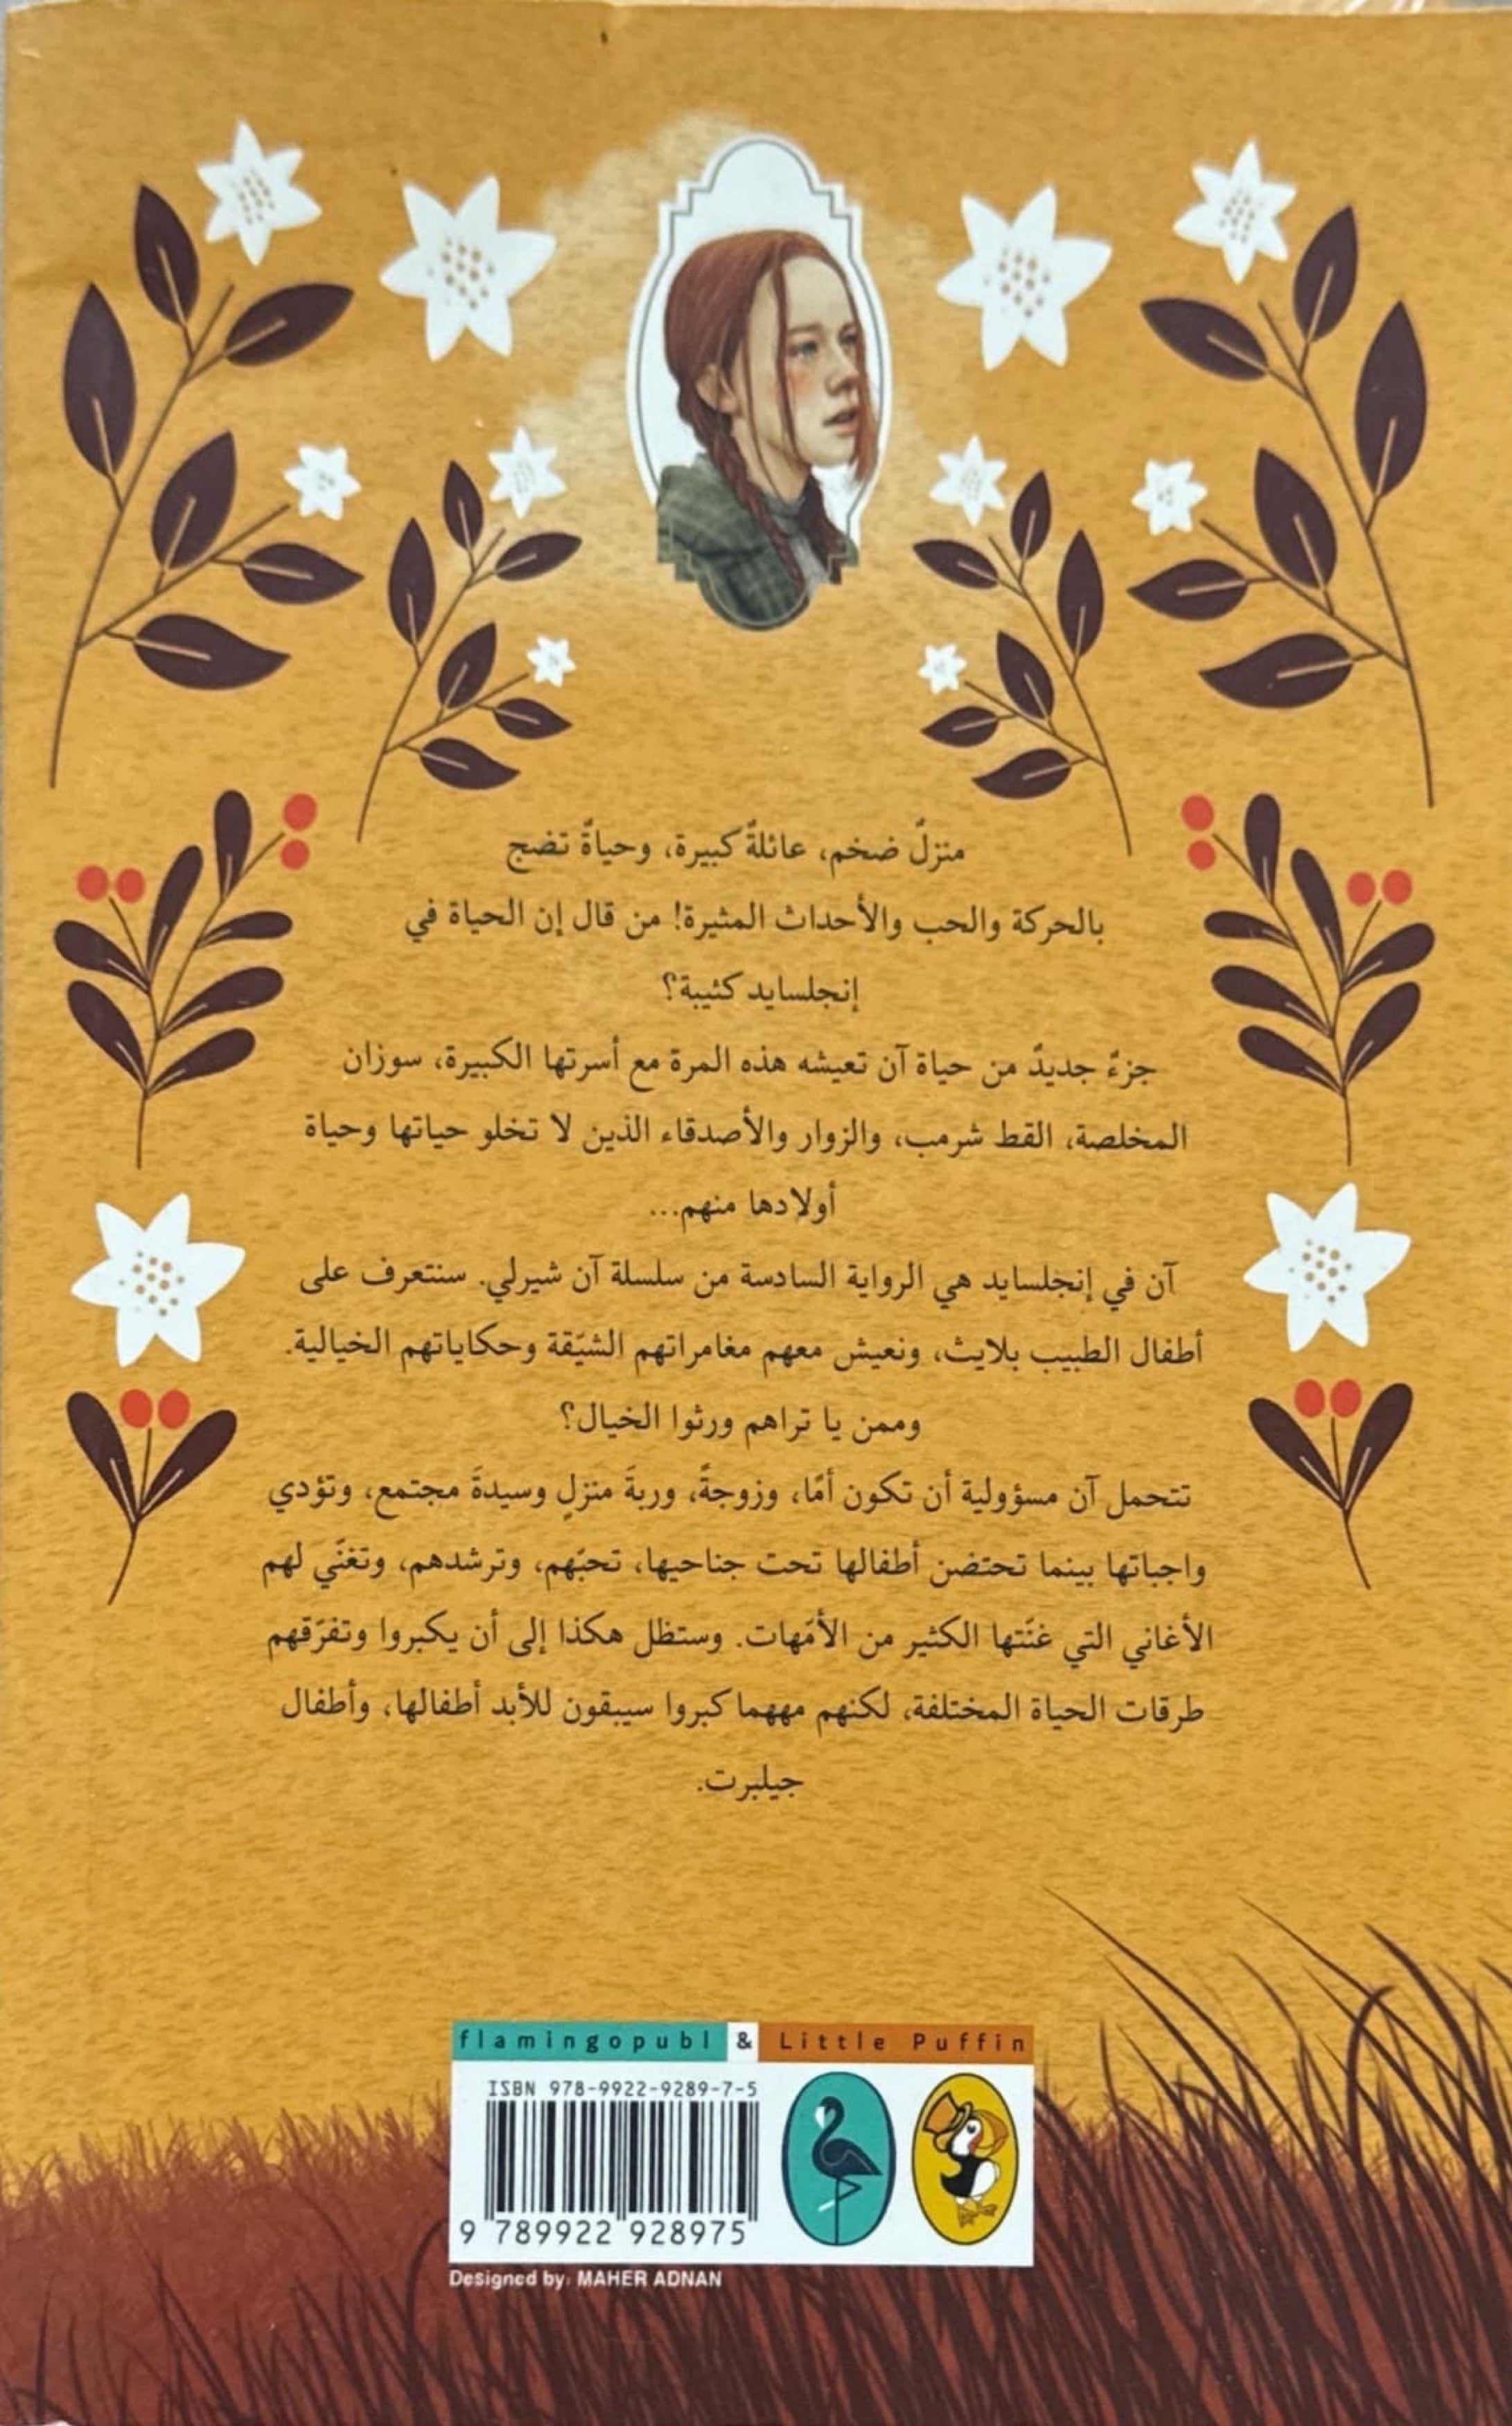 منزلٌ ضخم، عائلةٌ كبيرة، وحياةٌ تضج
بالحركة والحب والأحداث المثيرة! من قال إن الحياة في
إنجلسايد كئيبة؟
جزءٌ جديدٌ من حياة آن تعيشه هذه المرة مع أسرتها الكبيرة، سوزان
المخلصة، القط شرمب، والزوار والأصدقاء الذين لا تخلو حياتها وحياة
أولادها منهم...
آن في إنجلسايد هي الرواية السادسة من سلسلة آن شيرلي. سنتعرف على
أطفال الطبيب بلايث، ونعيش معهم مغامراتهم الشيّقة وحكاياتهم الخيالية.
وممن يا تراهم ورثوا الخيال؟
تتحمل آن مسؤولية أن تكون أمًا، وزوجةً، وربةَ منزلٍ وسيدةَ مجتمع، وتؤدي
واجباتها بينما تحتضن أطفالها تحت جناحيها، تحبّهم، وترشدهم، وتغنّي لهم
الأغاني التي غنّتها الكثير من الأمّهات. وستظل هكذا إلى أن يكبروا وتفرّقهم
طرقات الحياة المختلفة، لكنهم مهما كبروا سيبقون للأبد أطفالها، وأطفال
جيلبرت.
flamingopubl & Little Puffin
ISBN 978-9922-9289-7-5
9 789922 928975
Designed by: MAHER ADNAN